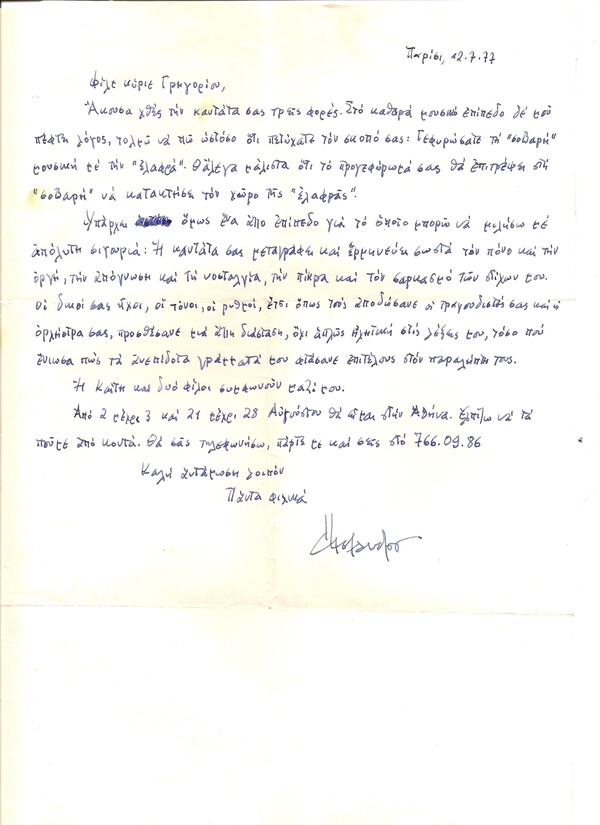 Παρίσι, 12.7.77
Φίλε κύριε Γρηγορίου,
Ἄκουσα χθὲς τὴν καντάτα σας τρεῖς φορές. Στὸ καθαρά μουσικό ἐπίπεδο δέ μοῦ
πέφτει λόγος, τολμῶ νὰ πῶ ὡστόσο ὅτι πετύχατε τὸν σκοπό σας: Γεφυρώσατε τὴ "σοβαρὴ"
μουσικὴ μὲ τὴν "ἐλαφρά". Θἄλεγα μάλιστα ὅτι τὸ προγεφύρωμά σας θὰ ἐπιτρέψει στὴ
"σοβαρὴ" νὰ κατακτήσει τὸν χῶρο τῆς "ἐλαφρᾶς".
Ὑπάρχει ὅμως ἕνα ἄλλο ἐπίπεδο γιὰ τὸ ὁποῖο μπορῶ νὰ μιλήσω μὲ
ἀπόλυτη σιγουριά: Ἡ καντάτα σας μεταγράφει καὶ ἑρμηνεύει σωστὰ τὸν πόνο καὶ τὴν
ὀργή, τὴν ἀπόγνωση καὶ τὴ νοσταλγία, τὴν πίκρα καὶ τὸν σαρκασμό τῶν στίχων μου.
Οἱ δικοί σας ἦχοι, οἱ τόνοι, οἱ ρυθμοί, ἔτσι ὅπως τοὺς ἀποδώσανε οἱ τραγουδιστές σας καὶ ἡ
ὀρχήστρα σας, προσθέσανε μιὰ ἄλλη διάσταση, ὄχι ἁπλῶς ἠχητικὴ στὶς λέξεις μου, τόσο ποὺ
ἔνιωσα πὼς τὰ ἀνεπίδοτα γράμματά μου φτάσανε ἐπιτέλους στὸν παραλήπτη τους.
Ἡ Καίτη καὶ δυὸ φίλοι συμφωνοῦν μαζί μου.
Ἀπὸ 2 μέχρι 3 καὶ 21 μέχρι 28 Αὐγούστου θὰ εἶμαι στὴν Ἀθήνα. Ἐλπίζω νὰ τὰ
ποῦμε ἀπὸ κοντά. Θὰ σᾶς τηλεφωνήσω, πάρτε με καὶ σεῖς στὸ 766.09.86
Καλὴ ἀντάμωση λοιπὸν
Πάντα φιλικά